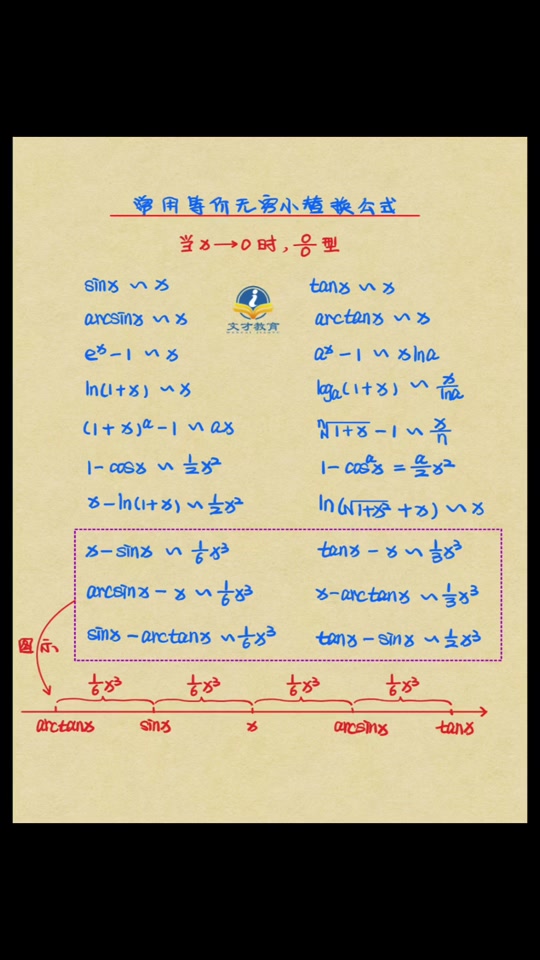 常用等价无穷小替换公式
当x→0时,0/0型
sinx ∽ x    tanx ∽ x
arcsinx ∽ x    arctanx ∽ x
文才教育
eˣ-1 ∽ x    aˣ-1 ∽ xlna
ln(1+x) ∽ x    logₐ(1+x) ∽ x/lna
(1+x)ᵃ-1 ∽ ax    ⁿ√(1+x) -1 ∽ x/n
1-cosx ∽ 1/2x²    1-cosᵃx = a/2x²
x-ln(1+x) ∽ 1/2x²    ln(√(1+x²) +x) ∽ x
x-sinx ∽ 1/6x³    tanx-x ∽ 1/3x³
arcsinx-x ∽ 1/6x³    x-arctanx ∽ 1/3x³
sinx-arctanx ∽ 1/6x³    tanx-sinx ∽ 1/2x³
图示
1/6x³    1/6x³    1/6x³    1/6x³
arctanx    sinx    x    arcsinx    tanx